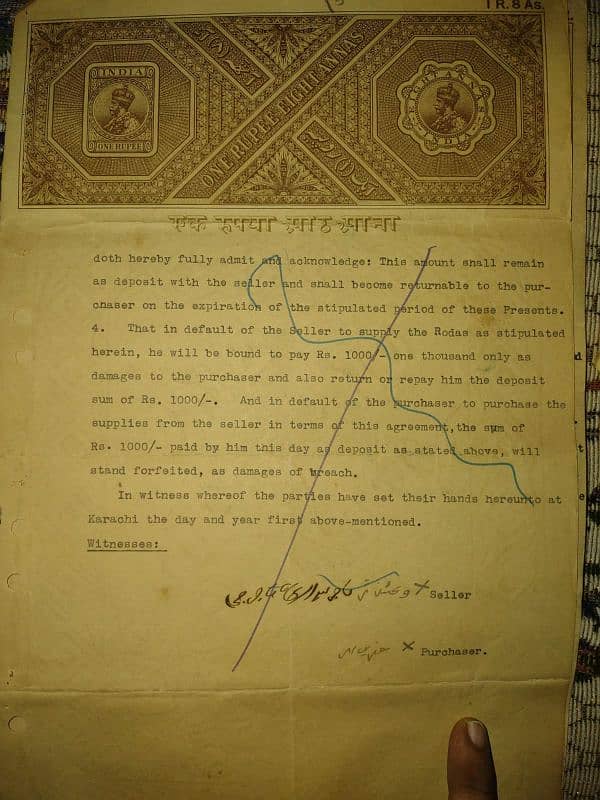 1 R. 8 As.
INDIA
ONE RUPEE
ONE RUPEE EIGHT ANNAS
EIGHT ANNAS
INDIA
एक रुपया आठ आना
doth hereby fully admit and acknowledge: This amount shall remain
as deposit with the seller and shall become returnable to the pur-
chaser on the expiration of the stipulated period of these Presents.
4. That in default of the Seller to supply the Rodas as stipulated
herein, he will be bound to pay Rs. 1000/- one thousand only as
damages to the purchaser and also return or repay him the deposit
sum of Rs. 1000/-. And in default of the purchaser to purchase the
supplies from the seller in terms of this agreement, the sum of
Rs. 1000/- paid by him this day as deposit as stated above, will
stand forfeited, as damages of breach.
In witness whereof the parties have set their hands hereunto at
Karachi the day and year first above-mentioned.
Witnesses:
X Seller
X Purchaser.